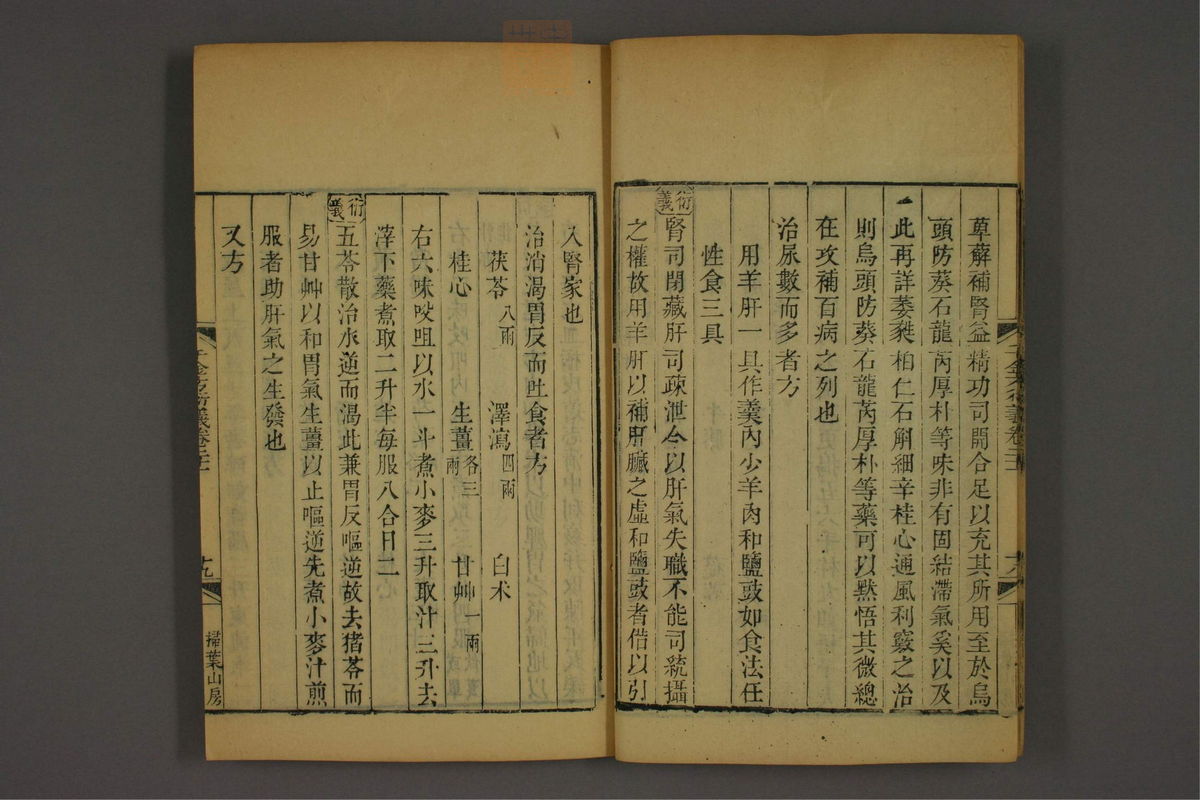 萆薢補腎益精功司開合足以充其所用至於烏
頭防葵石龍芮厚朴等味非有固結滯氣奚以及
此再詳萎蕤柏仁石斛細辛桂心通風利竅之治
則烏頭防葵石龍芮厚朴等藥可以默悟其微總
在攻補百病之列也
治尿數而多者方
用羊肝一具作羹內少羊肉和鹽豉如食法任
性食三具
衍義
腎司閉藏肝司疎泄今以肝氣失職不能司統攝
之權故用羊肝以補肝臟之虛和鹽豉者借以引
千金方衍義卷二十一
入腎家也
治消渴胃反而吐食者方
茯苓八兩 澤瀉四兩 白术
桂心 生薑各三兩 甘艸一兩
右六味㕮咀以水一斗煮小麥三升取汁三升去
滓下藥煮取二升半每服八合日二
衍義
五苓散治水逆而渴此兼胃反嘔逆故去猪苓而
易甘艸以和胃氣生薑以止嘔逆先煮小麥汁煎
服者助肝氣之生發也
又方
千金方衍義卷二十一
十九
掃葉山房